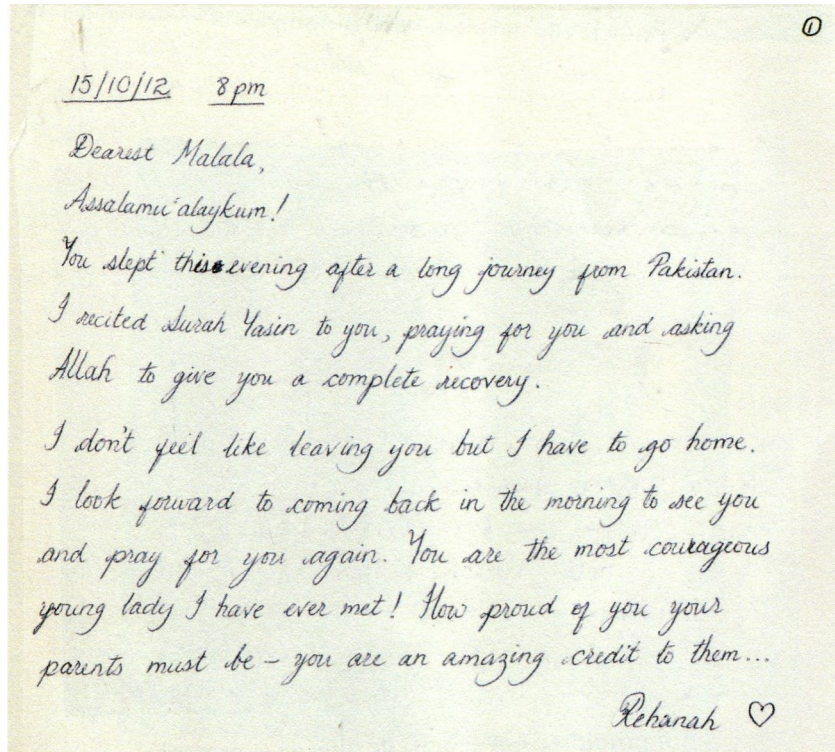 ①
15/10/12 8pm
Dearest Malala,
Assalamu'alaykum!
You slept this evening after a long journey from Pakistan.
I recited Surah Yasin to you, praying for you and asking
Allah to give you a complete recovery.
I don't feel like leaving you but I have to go home.
I look forward to coming back in the morning to see you
and pray for you again. You are the most courageous
young lady I have ever met! How proud of you your
parents must be – you are an amazing credit to them...
Rehanah ♡